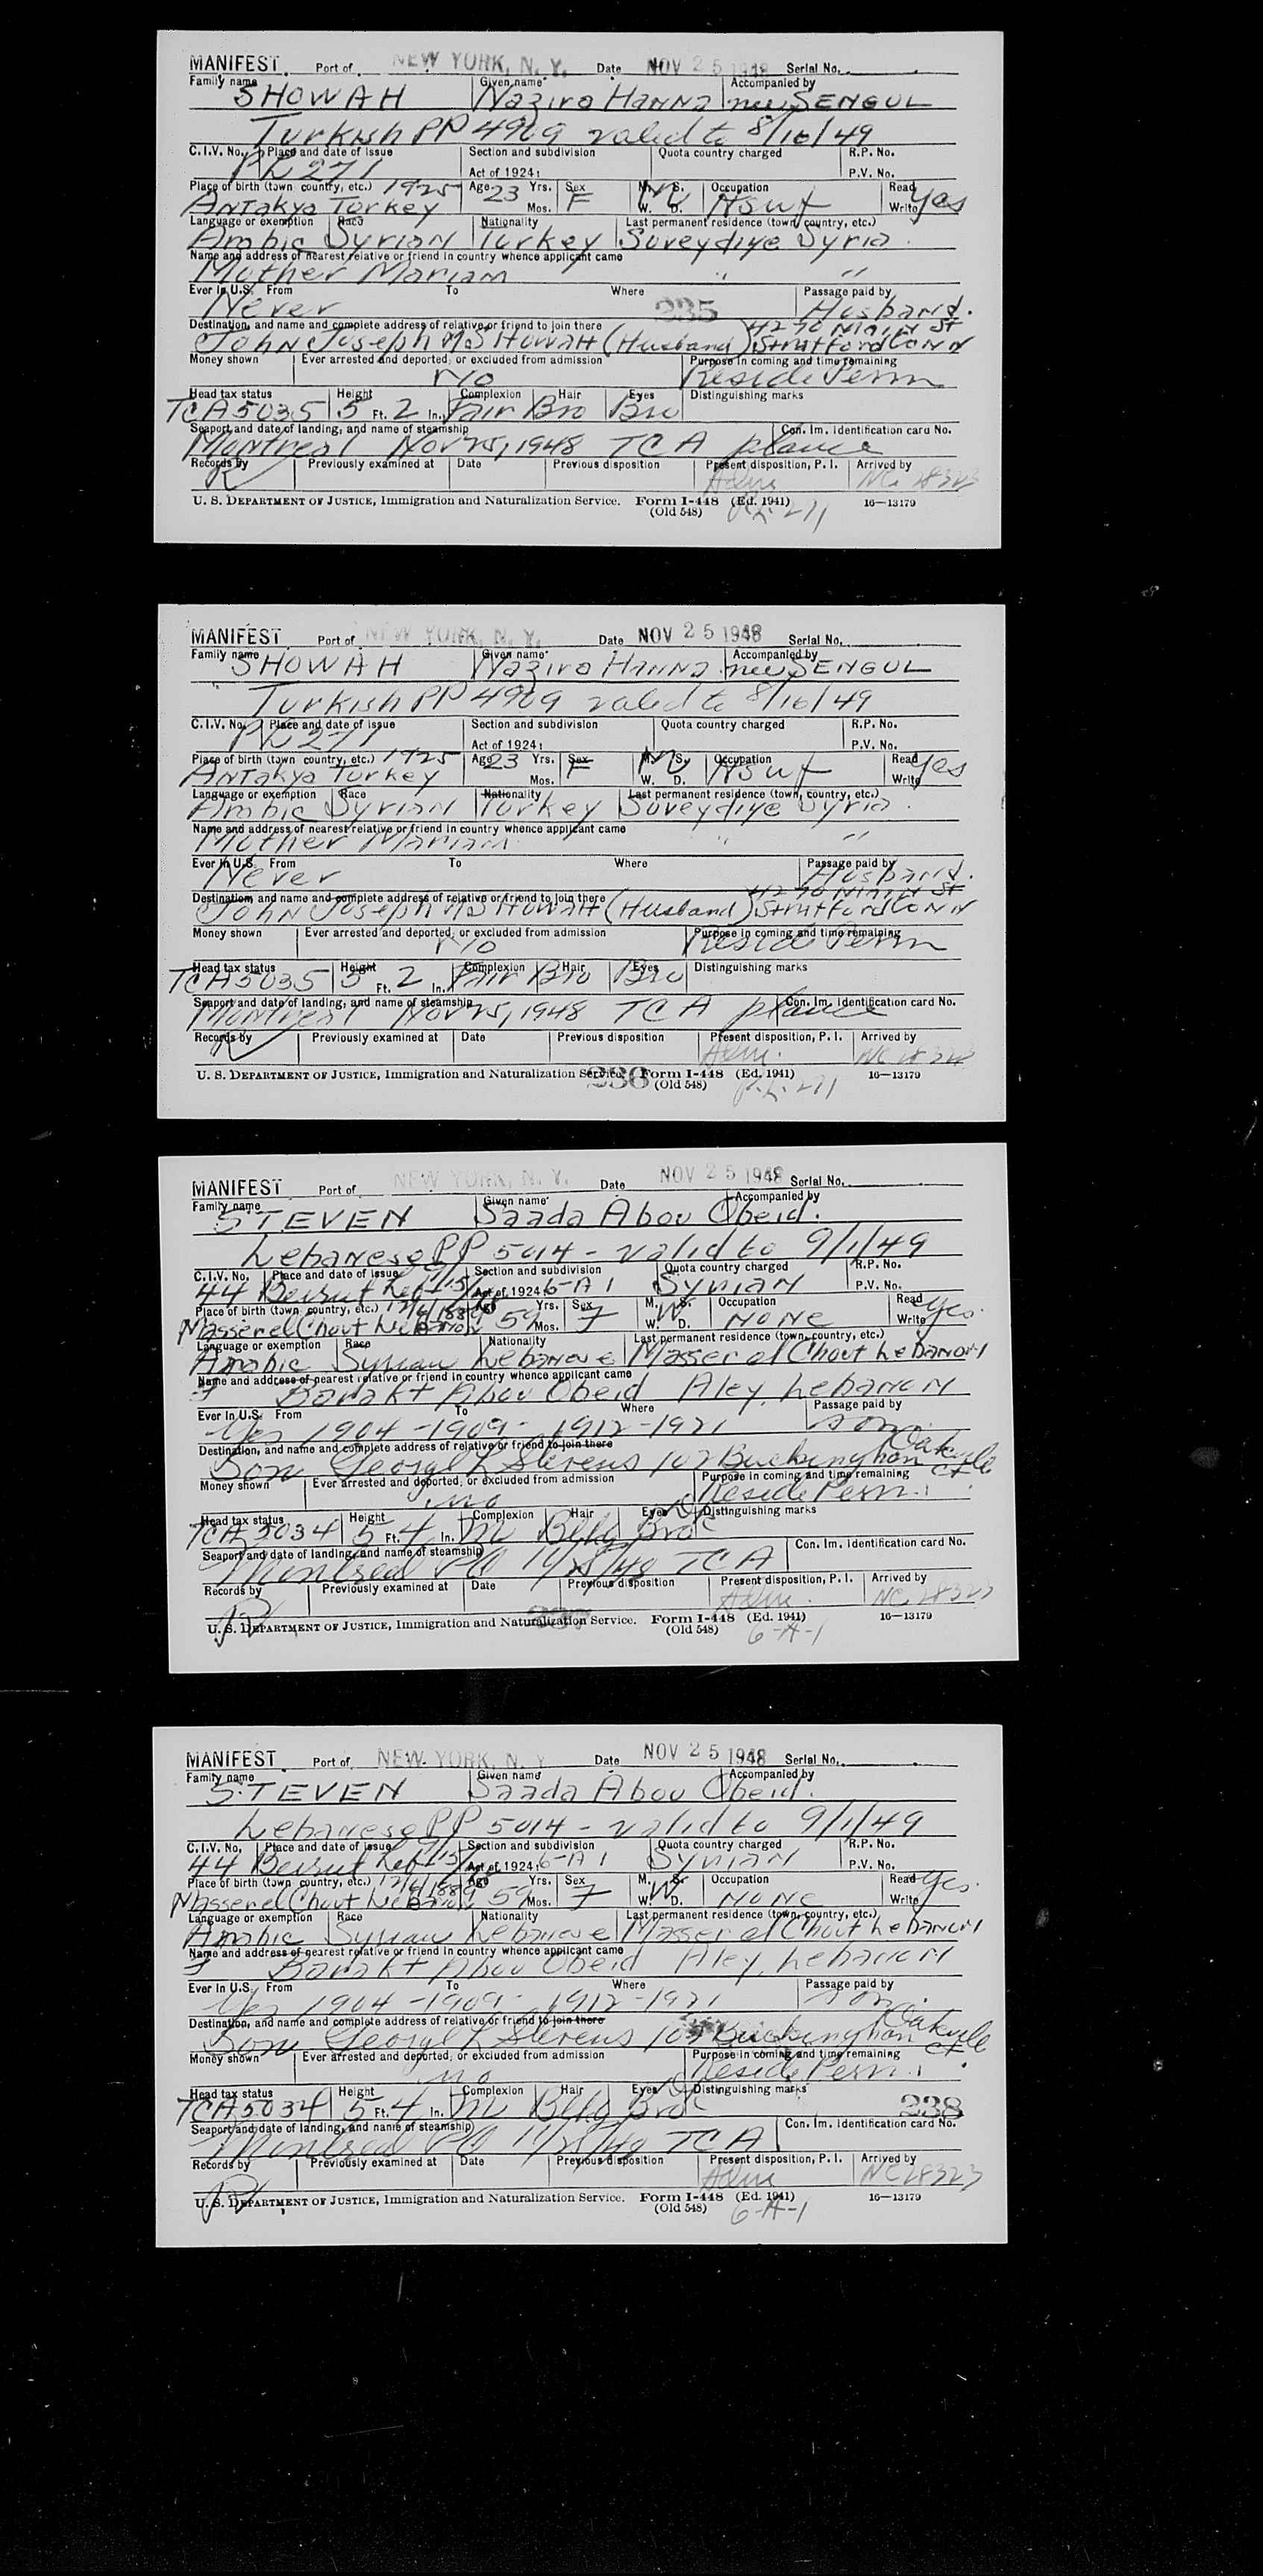 MANIFEST Port of NEW YORK, N. Y. Date NOV 25 1948 Serial No.
Family name Given name Accompanied by
SHOWAH Nazira Hanna nee SENGUL
Turkish PP 4969 valid to 8/16/49
C.I.V. No. Place and date of issue Section and subdivision Quota country charged R.P. No.
271 Act of 1924: P.V. No.
Place of birth (town country, etc.) 1925 Age 23 Yrs. Sex M. S. Occupation Read Yes
Antakya Turkey Mos. F W. D. Hswf Write
Language or exemption Race Nationality Last permanent residence (town, country, etc.)
Arabic Syrian Turkey Suveydiye Syria
Name and address of nearest relative or friend in country whence applicant came
Mother Mariam " "
Ever in U.S. From To Where Passage paid by
Never 235 Husband.
Destination, and name and complete address of relative or friend to join there St
John Joseph SHOWAH (Husband) Stratford Conn
Money shown Ever arrested and deported, or excluded from admission Purpose in coming and time remaining
No Reside Perm
Head tax status Height Complexion Hair Eyes Distinguishing marks
TCA 5035 5 Ft. 2 In. Fair Bro Bro
Seaport and date of landing, and name of steamship Con. Im. identification card No.
Montreal Nov 25, 1948 TCA plane
Records by Previously examined at Date Previous disposition Present disposition, P. I. Arrived by
Adm NC 18323
U. S. DEPARTMENT OF JUSTICE, Immigration and Naturalization Service. Form I-448 (Ed. 1941) 16—13179
(Old 548) 271
MANIFEST Port of NEW YORK, N. Y. Date NOV 25 1948 Serial No.
Family name Given name Accompanied by
SHOWAH Nazira Hanna nee SENGUL
Turkish PP 4969 valid to 8/16/49
C.I.V. No. Place and date of issue Section and subdivision Quota country charged R.P. No.
271 Act of 1924: P.V. No.
Place of birth (town country, etc.) 1925 Age 23 Yrs. Sex M. S. Occupation Read Yes
Antakya Turkey Mos. F W. D. Hswf Write
Language or exemption Race Nationality Last permanent residence (town, country, etc.)
Arabic Syrian Turkey Suveydiye Syria
Name and address of nearest relative or friend in country whence applicant came
Mother Mariam " "
Ever in U.S. From To Where Passage paid by
Never Husband.
Destination, and name and complete address of relative or friend to join there St
John Joseph SHOWAH (Husband) Stratford Conn
Money shown Ever arrested and deported, or excluded from admission Purpose in coming and time remaining
No Reside Perm
Head tax status Height Complexion Hair Eyes Distinguishing marks
TCA 5035 5 Ft. 2 In. Fair Bro Bro
Seaport and date of landing, and name of steamship Con. Im. identification card No.
Montreal Nov 25, 1948 TCA plane
Records by Previously examined at Date Previous disposition Present disposition, P. I. Arrived by
Adm. NC 18323
U. S. DEPARTMENT OF JUSTICE, Immigration and Naturalization Service. 236 Form I-448 (Ed. 1941) 16—13179
(Old 548) 271
MANIFEST Port of NEW YORK, N. Y. Date NOV 25 1948 Serial No.
Family name Given name Accompanied by
STEVEN Saada Abou Obeid.
Lebanese PP 5014 - valid to 9/1/49
C.I.V. No. Place and date of issue Section and subdivision Quota country charged R.P. No.
44 Beirut Leb Act of 1924: 6-A1 Syrian P.V. No.
Place of birth (town country, etc.) 12/6/1889 Age 59 Yrs. Sex M. S. Occupation Read Yes.
Masser el Chouf Lebanon Mos. F W. D. None Write
Language or exemption Race Nationality Last permanent residence (town, country, etc.)
Arabic Syrian Lebanese Masser el Chouf Lebanon
Name and address of nearest relative or friend in country whence applicant came
Barakt Abou Obeid Aley, Lebanon
Ever in U.S. From To Where Passage paid by
Yes 1904-1909- 1912-1921 son.
Destination, and name and complete address of relative or friend to join there Oakville
Son George L Stevens 107 Buckingham Ct
Money shown Ever arrested and deported, or excluded from admission Purpose in coming and time remaining
no Reside Perm.
Head tax status Height Complexion Hair Eyes Distinguishing marks
TCA 5034 5 Ft. 4 In. M Blkg Bro
Seaport and date of landing, and name of steamship Con. Im. identification card No.
Montreal PQ 11/25/48 TCA
Records by Previously examined at Date Previous disposition Present disposition, P. I. Arrived by
Adm. NC 18323
U. S. DEPARTMENT OF JUSTICE, Immigration and Naturalization Service. 237 Form I-448 (Ed. 1941) 16—13179
(Old 548) 6-A-1
MANIFEST Port of NEW YORK, N. Y. Date NOV 25 1948 Serial No.
Family name Given name Accompanied by
STEVEN Saada Abou Obeid.
Lebanese PP 5014 - valid to 9/1/49
C.I.V. No. Place and date of issue Section and subdivision Quota country charged R.P. No.
44 Beirut Leb Act of 1924: 6-A1 Syrian P.V. No.
Place of birth (town country, etc.) 12/6/1889 Age 59 Yrs. Sex M. S. Occupation Read Yes.
Masser el Chouf Lebanon Mos. F W. D. None Write
Language or exemption Race Nationality Last permanent residence (town, country, etc.)
Arabic Syrian Lebanese Masser el Chouf Lebanon
Name and address of nearest relative or friend in country whence applicant came
Barakt Abou Obeid Aley, Lebanon
Ever in U.S. From To Where Passage paid by
Yes 1904-1909- 1912-1921 son.
Destination, and name and complete address of relative or friend to join there Oakville
Son George L Stevens 107 Buckingham Ct
Money shown Ever arrested and deported, or excluded from admission Purpose in coming and time remaining
no Reside Perm.
Head tax status Height Complexion Hair Eyes Distinguishing marks
TCA 5034 5 Ft. 4 In. M Blkg Bro 238
Seaport and date of landing, and name of steamship Con. Im. identification card No.
Montreal PQ 11/25/48 TCA
Records by Previously examined at Date Previous disposition Present disposition, P. I. Arrived by
Adm NC 18323
U. S. DEPARTMENT OF JUSTICE, Immigration and Naturalization Service. Form I-448 (Ed. 1941) 16—13179
(Old 548) 6-A-1